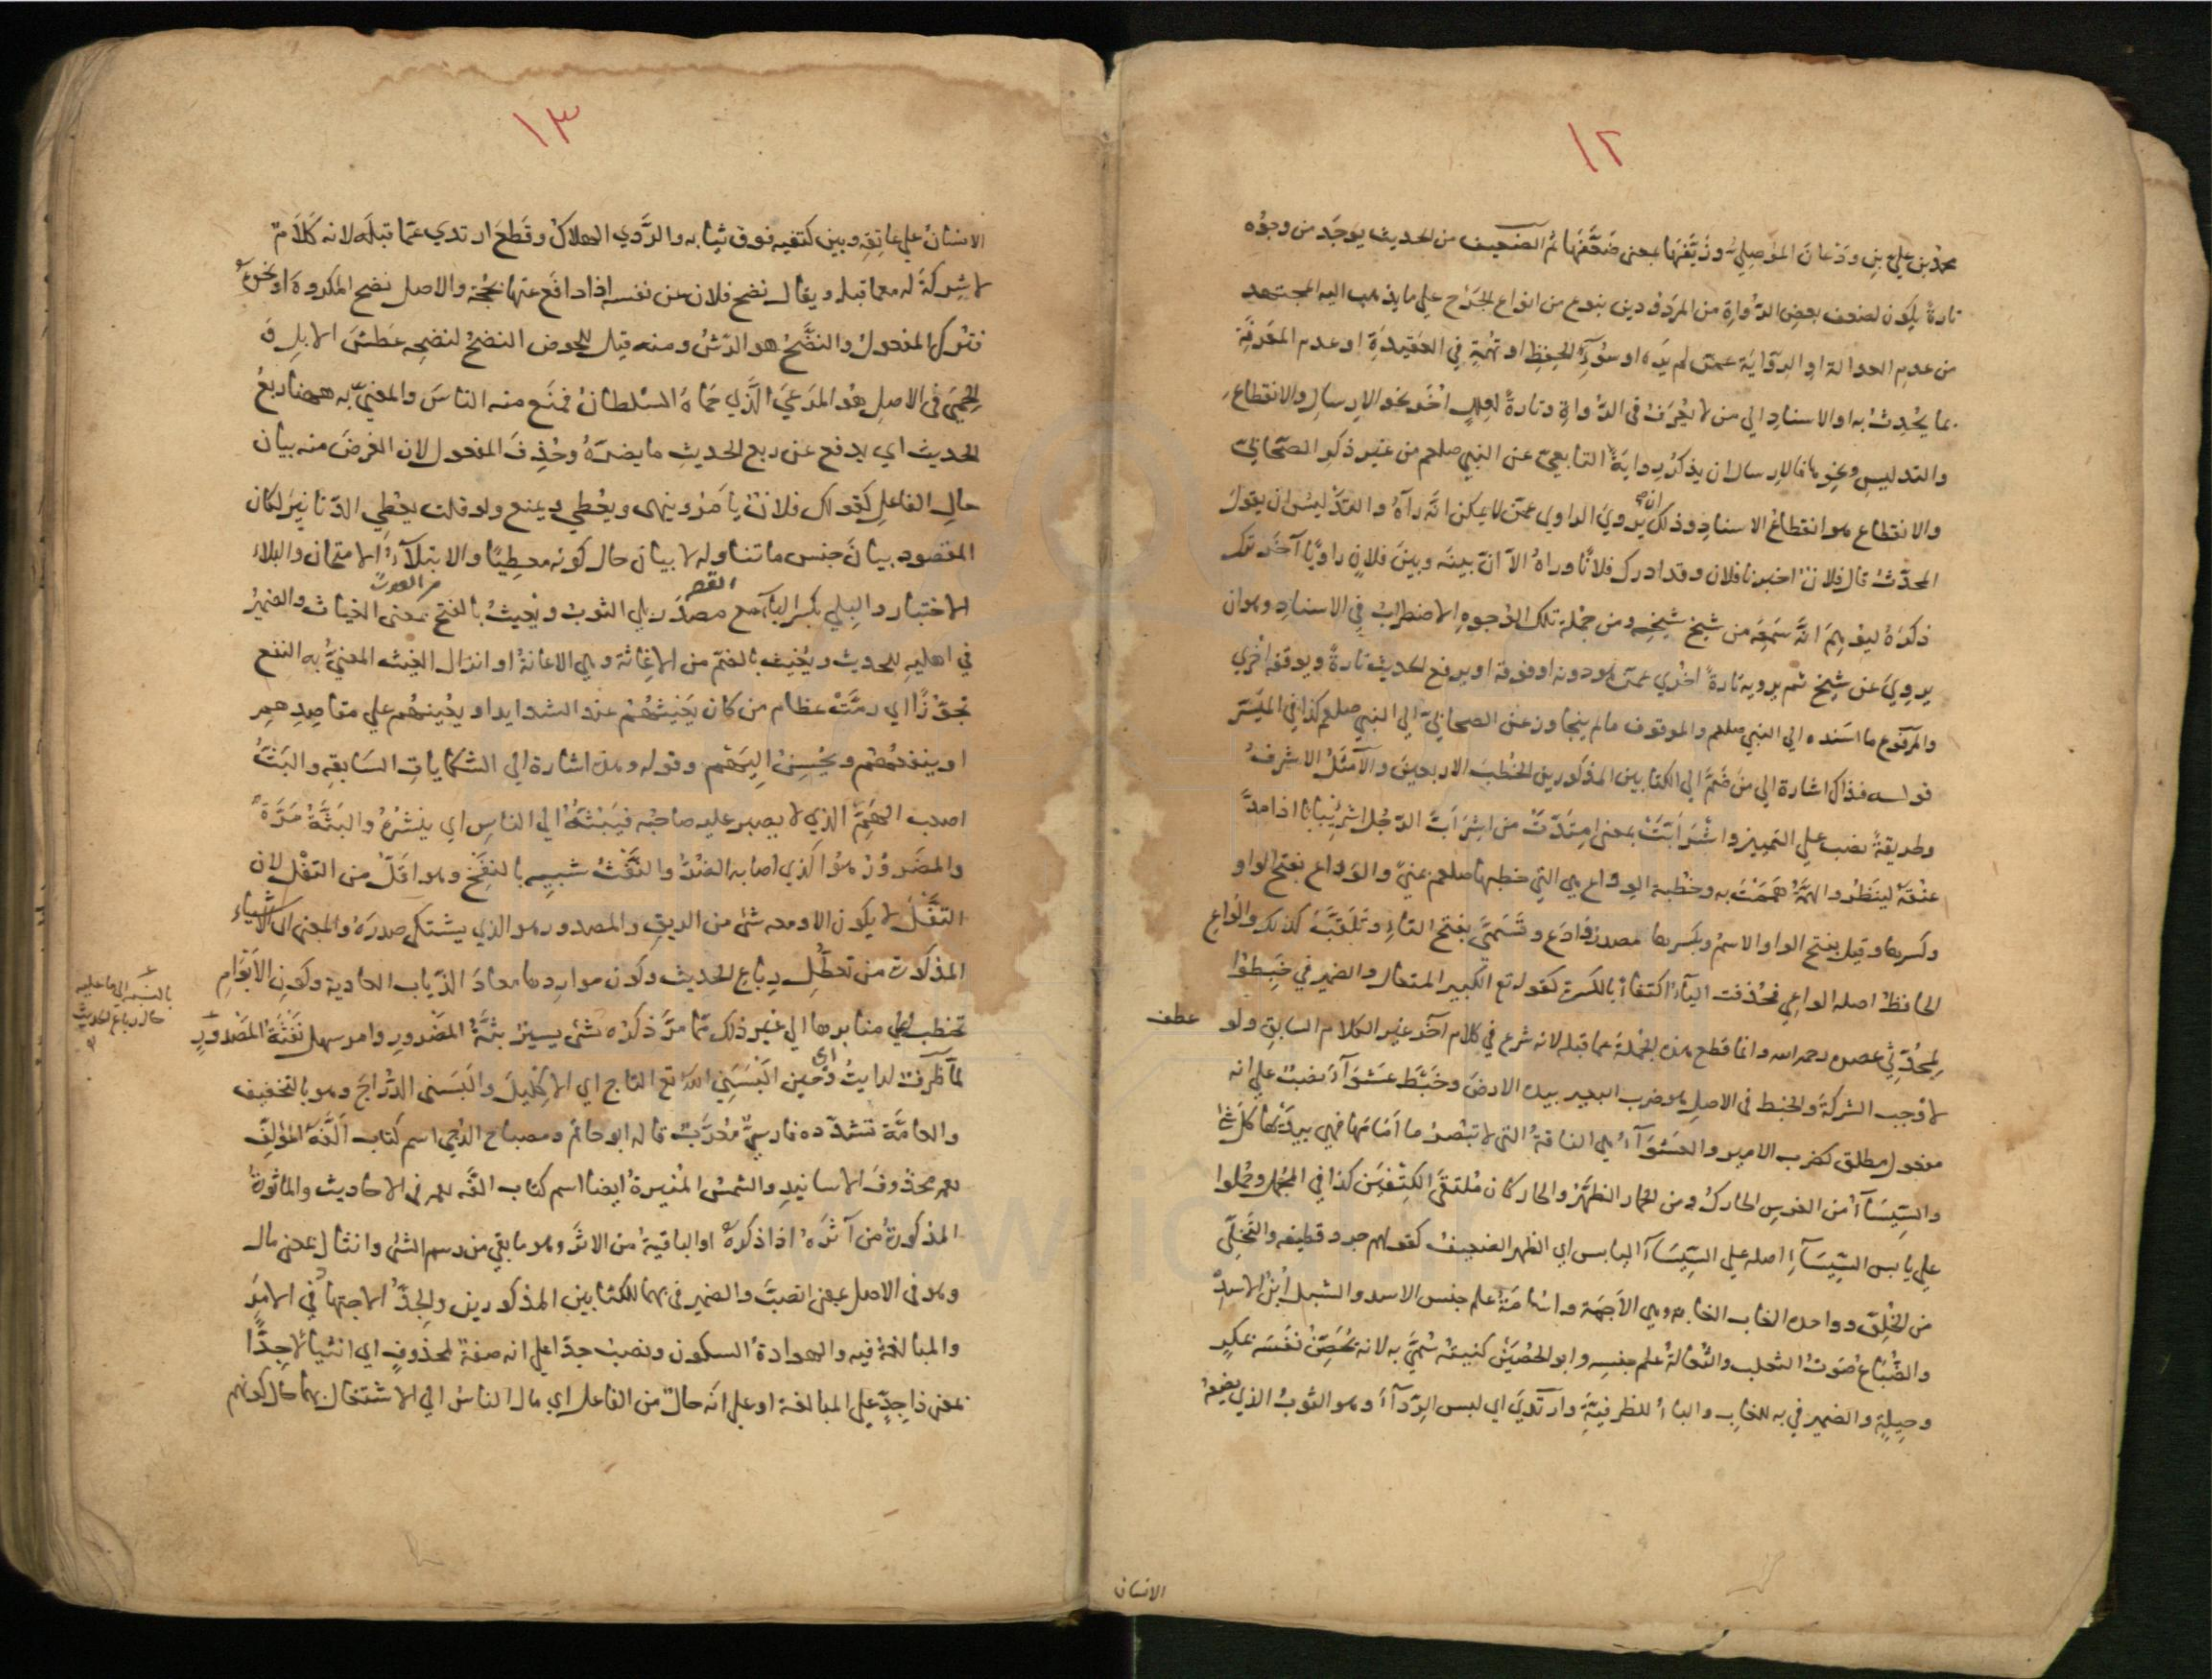 ١٢
محمد بن علي بن ودعان الموصلي وزيفها بمعنى ضعفها ثم الضعيف من الحديث يوجد من وجوه
تارة يكون لضعف بعض الرواة من المردودين بنوع من انواع الجرح علي ما يذهب اليه المجتهد
من عدم العدالة او الرواية عمن لم يره او سوء الحفظ او تهمة في العقيدة او عدم المعرفة
بما يحدث به او الاسناد الي من لا يعرف في الرواة وتارة لعلل اخر نحو الارسال والانقطاع
والتدليس ونحوها فالارسال ان يذكر رواية التابعي عن النبي صلعم من غير ذكر الصحابي
والانقطاع هو انقطاع الاسناد وذلك ان يروي الراوي عمن لا يمكن انه رآه والتدليس ان يقول
المحدث قال فلان اخبرنا فلان وقد ادرك فلانا وراه الا ان بينه وبين فلان راويا آخر ترك
ذكره ليوهم انه سمعه من شيخ شيخه ومن جملة تلك الوجوه الاضطراب في الاسناد وهو ان
يروي عن شيخ ثم يرويه تارة اخري عمن هو دونه او فوقه او يرفع الحديث تارة ويوقفه اخري
والمرفوع ما اسنده الي النبي صلعم والموقوف ما لم يتجاوز عن الصحابي الي النبي صلعم كذا في الميسر
قوله فذاك اشارة الي من ضم الي الكتابين المذكورين الخطب الاربعين والامثل الاشرف
وطريقة نصب علي التمييز واشرأبت بمعنى امتدت من اشرأب الرجل اشرئبابا اذا مد
عنقه لينظر والهمة هممت به وخطبة الوداع هي التي خطبها صلعم بمني والوداع بفتح الواو
وكسرها وقيل بفتح الواو الاسم وبكسرها مصدر وادع وتسمي بفتح التاء وتلقب كذلك والواع
الحافظ اصله الواعي فحذفت الياء اكتفاء بالكسرة كقوله تع الكبير المتعال والضمير في خبطوا
لمحدثي عصره رحمه الله وانما قطع هذه الجملة عما قبله لانه شرع في كلام آخر غير الكلام السابق ولو عطف
لاوجب الشركة والخبط في الاصل هو ضرب البعير بيده الارض وخبط عشوآء نصب علي انه
مفعول مطلق كضرب الامير والعشوآء هي الناقة التي لا تبصر ما امامها فهي بيديها كل شئ
والسيسآء من الفرس الحارك ومن الحمار الظهر والحارك ان ملتقي الكتفين كذا في المجمل وحملوا
علي يابس السيسآء اصله علي السيسآء اليابس اي الظهر الضعيف كقولهم جرد قطيفة والتخلي
من الخلق وواحدة الغاب الغابة وهي الاجمة واسامة علم جنس الاسد والشبل ابن الاسد
والضباع صوت الثعلب والثعالة علم جنسه وابو الحصين كنيته سمي به لانه يحصن نفسه بمكر
وحيلة والضمير في به للغاب والباء للظرفية وارتدي اي لبس الردآء وهو الثوب الذي يضعه
الانسان
١٣
الانسان علي عاتقه وبين كتفيه فوق ثيابه والردي الهلاك وقطع ارتدي عما قبله لانه كلام
لا شركة له مع ما قبله ويقال نضح فلان عن نفسه اذا دافع عنها بحجة والاصل نضح المكروه او نحوه
فترك المفعول والنضح هو الرش ومنه قيل للحوض النضح لنضحه عطش الابل و
الحمي في الاصل هو المرعي الذي حماه السلطان فمنع منه الناس والمعني به ههنا ربع
الحديث اي يدفع عن ربع الحديث ما يضره وحذف المفعول لان الغرض منه بيان
حال الفاعل كقولك فلان يأمر وينهى ويعطي ويمنع ولو قلت يعطي الدنانير لكان
المقصود بيان جنس ما تناوله لا بيان حال كونه معطيا والابتلآء الامتحان والبلاء
الاختبار والبلي بكسر الباء مع القصر مصدر بلي الثوب ويغيث بالفتح من الغوث بمعنى الغياث والضمير
في اهليه للحديث ويغيث بالضم من الاغاثة وهي الاعانة او انزال الغيث المعني به النفع
تجوزا اي رمت عظام من كان يغيثهم عند الشدايد او يعينهم علي مقاصدهم
او ينفعهم ويحسن اليهم وقوله وهذه اشارة الي الشكايات السابقة والبث
اصعب الهم الذي لا يصبر عليه صاحبه فيبثه الي الناس اي ينشره والبثة مرة
والمضرور هو الذي اصابه الضر والنفث شبيه بالنفخ وهو اقل من التفل لان
التفل لا يكون الا ومعه شئ من الريق والمصدور هو الذي يشتكي صدره والمعنى ان الاشياء
المذكورة من تعطل رباع الحديث وكون مواردها معاد الذياب العادية وكون الاقوام
تخطب علي منابرها الي غير ذلك مما مر ذكره شئ يسير بثة المضرور وامر سهل نفثة المصدور
بالنسبة الي ما عليه
حال رباع الحديث
لما ظرف لرايت اي وحين البسني الله تع التاج اي الاكليل والبسني الدراج وهو بالتخفيف
والعامة تشدده فارسي معرب قاله ابو حاتم ومصباح الدجي اسم كتاب الفه المؤلف
محذوف الاسانيد والشمس المنيرة ايضا اسم كتاب الفه في الاحاديث والماثورة
المذكورة من آثره اذا ذكره او الباقية من الاثر وهو ما بقي من رسم الشئ وانثال بمعنى مال
وهو في الاصل بمعنى انصب والضمير في بهما للكتابين المذكورين والجد الاجتهاد في الامر
والمبالغة فيه والهوادة السكون ونصب جدا علي انه صفة لمحذوف اي انثيالا جدا
بمعنى ذا جد علي المبالغة او علي انه حال من الفاعل اي مال الناس الي الاشتغال بهما حال كونهم